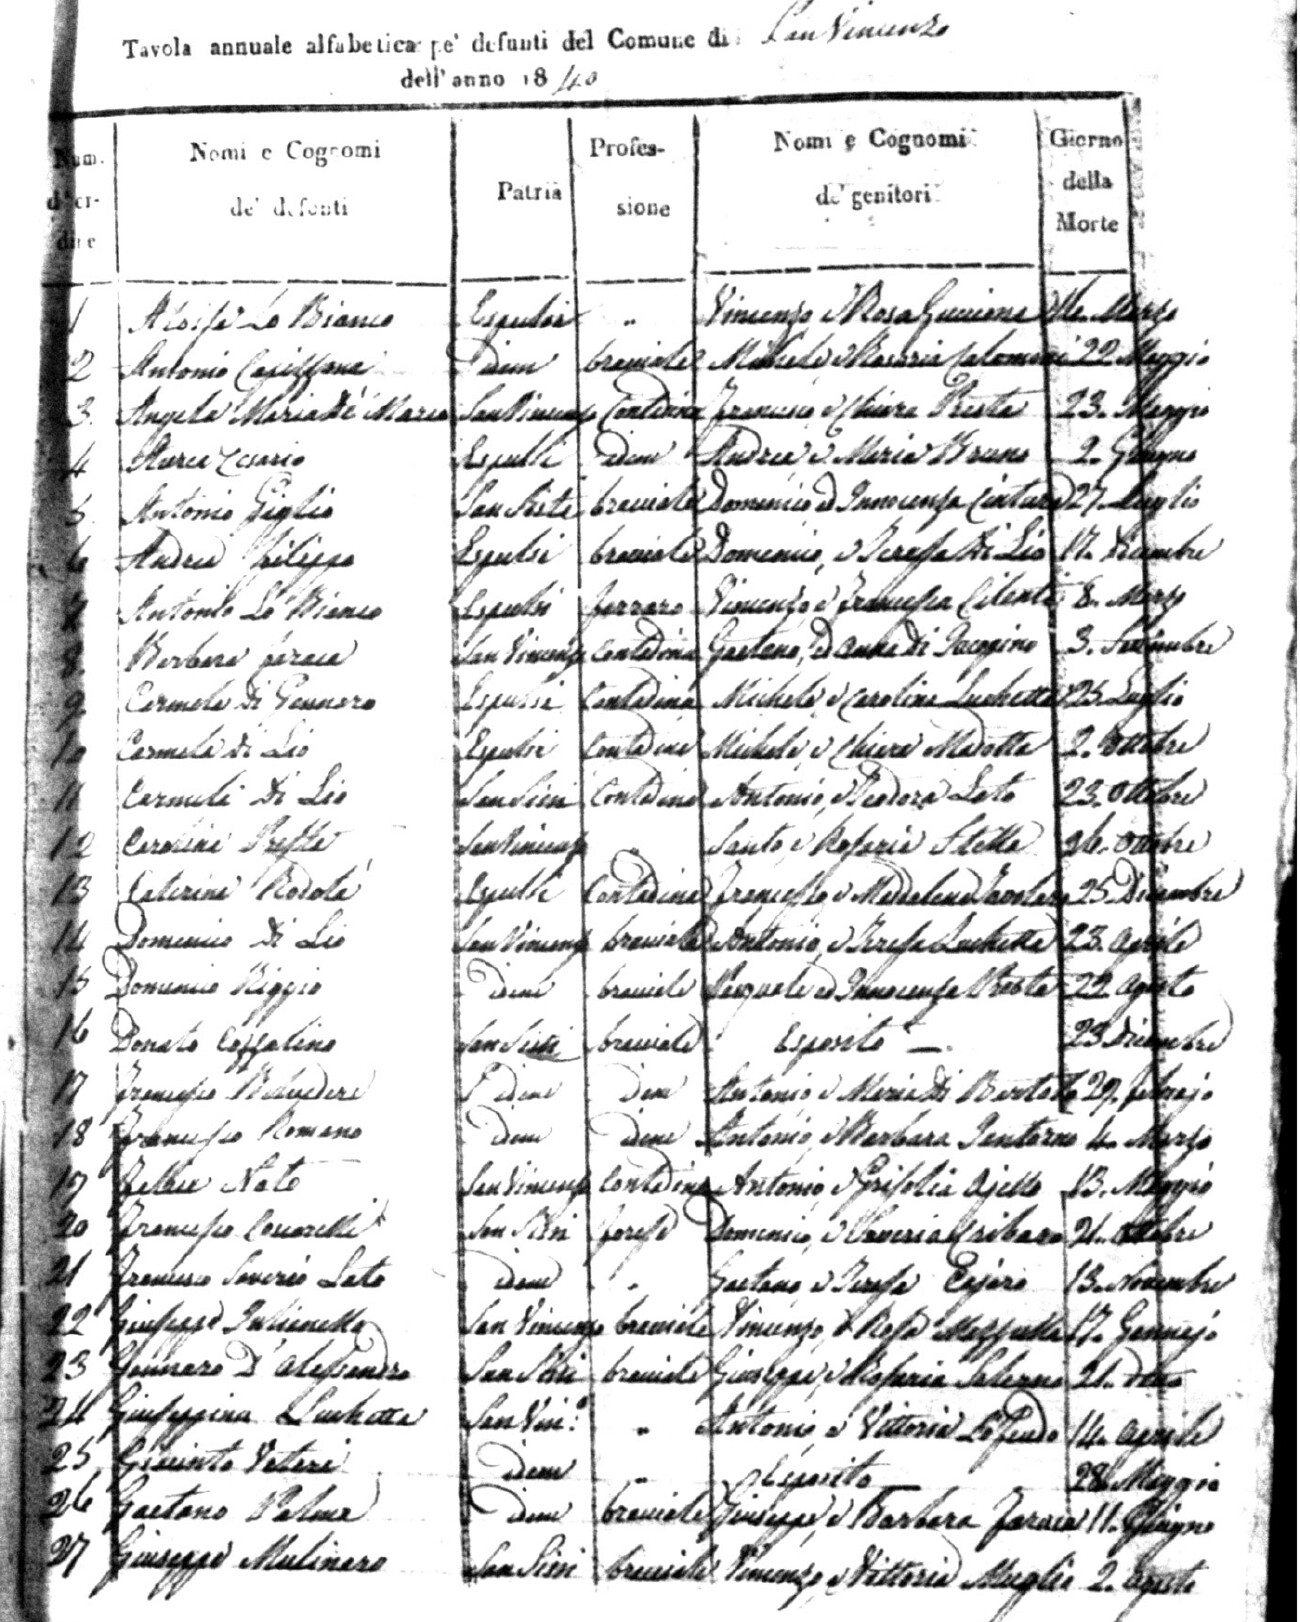 Tavola annuale alfabetica pe' defunti del Comune di San Vincenzo
dell'anno 1840
Num. d'ordine Nomi e Cognomi de' defonti Patria Professione Nomi e Cognomi de' genitori Giorno della Morte
1 Lo Bianco Espulsi " Vincenzo e Rosa Marzo
2 Antonio idem bracciale Michele e 22. Maggio
3 Angela Maria De Maria San Vincenzo Contadina Francesco e Chiara Presta 23. Maggio
4 Espulsi idem Andrea e Maria Bruno 2. Giugno
5 Antonio Giglio San Sisti bracciale Domenico ed Innocenza 27. Luglio
6 Andrea Filippo Espulsi bracciale Domenico, e Teresa Di Lio 17. dicembre
7 Antonio Lo Bianco Espulsi ferraro Vincenzo e Francesca Cilenti 8. Marzo
8 Barbara San Vincenzo Contadina Gaetano, ed Anna Di Jacopino 3. Settembre
9 Carmela Di Gennaro Espulsi Contadina Michele, e Carolina Luchetta 25. Luglio
10 Carmela di Lio Espulsi Contadina Michele, e Chiara 2. Ottobre
11 Di Lio San Sisti Contadina Antonio, e Teodora Lato 23. Ottobre
12 Carolina Presta San Vincenzo " Santo, e Rosaria Stella 26. Ottobre
13 Caterina Rodotà Espulsi Contadina Francesco, e Maddalena 25. Dicembre
14 Domenico Di Lio San Vincenzo bracciale Antonio, e Teresa Luchetta 23. Aprile
15 Domenico Riggio idem bracciale Pasquale ed Innocenza Presta 22 Agosto
16 Donato San Sisti bracciale Esposito — 23 Dicembre
17 Francesco Belvedere idem idem Antonio, e Maria Di 29. febrajo
18 Francesco Romano idem idem Antonio, e Barbara 4. Marzo
19 San Vincenzo Contadina Antonio, e Ajello 13. Maggio
20 Francesco San Sisti Domenico, e Saveria 21. Ottobre
21 Francesco Saverio Lato idem " Gaetano, e Teresa 13. Novembre
22 Giuseppe San Vincenzo bracciale Vincenzo, e Rosa Mazzulla 17. Gennajo
23 Gennaro D'Alessandro San Sisti bracciale Giuseppe, e Rosaria Salerno 21. detto
24 Giuseppina Luchetta San Vin.o " Antonio, e Vittoria Lo Feudo 14. Aprile
25 Giacinto Veteri idem " Esposito 28. Maggio
26 Gaetano Palma idem bracciale Giuseppe, e Barbara 11. Giugno
27 Giuseppe Mulinaro San Sisti bracciale Vincenzo, e Vittoria Muglio 2. Agosto